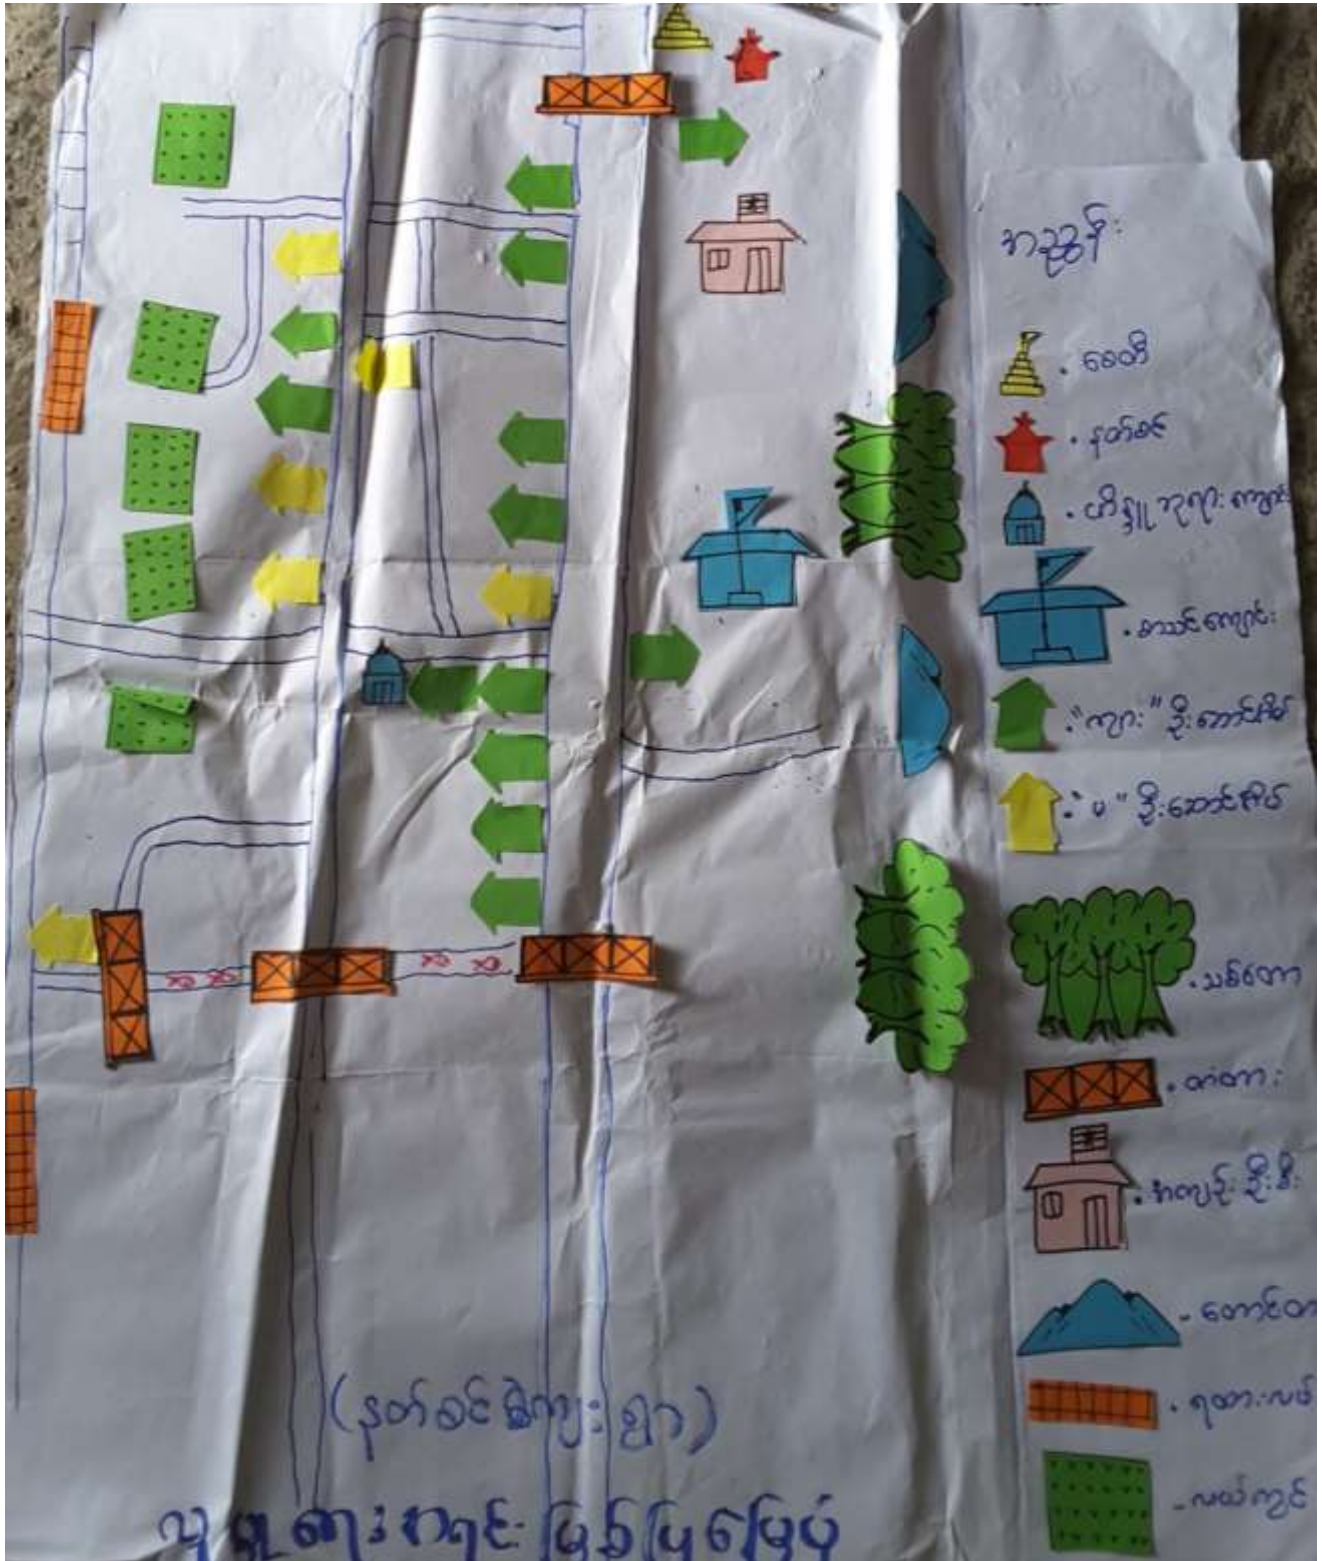 အညွှန်း
စေတီ
နတ်စင်
ဟိန္ဒူ ဘုရား ကျောင်း
စာသင်ကျောင်း
"ကျား" ဦးဆောင်အိမ်
"မ" ဦးဆောင်အိမ်
သစ်တော
တံတား
အကျဉ်းဦးစီး
တောင်တ
ရထားလမ်
လယ်ကွင်
(နတ်စင်ရွဲကျေးရွာ)
လူမှုရေးအရင်းမြစ်ပြမြေပုံ